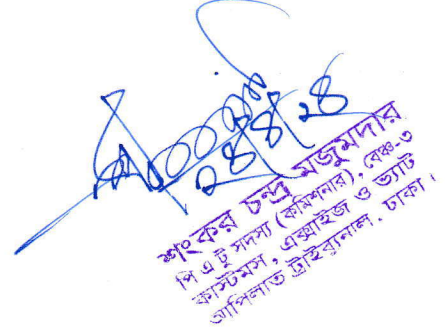 ২৪/৪/২৪
শংকর চন্দ্র মজুমদার
পি এ টু সদস্য (কমিশনার), বেঞ্চ-৩
কাস্টমস, এক্সাইজ ও ভ্যাট
আপিলাত ট্রাইব্যুনাল. ঢাকা।